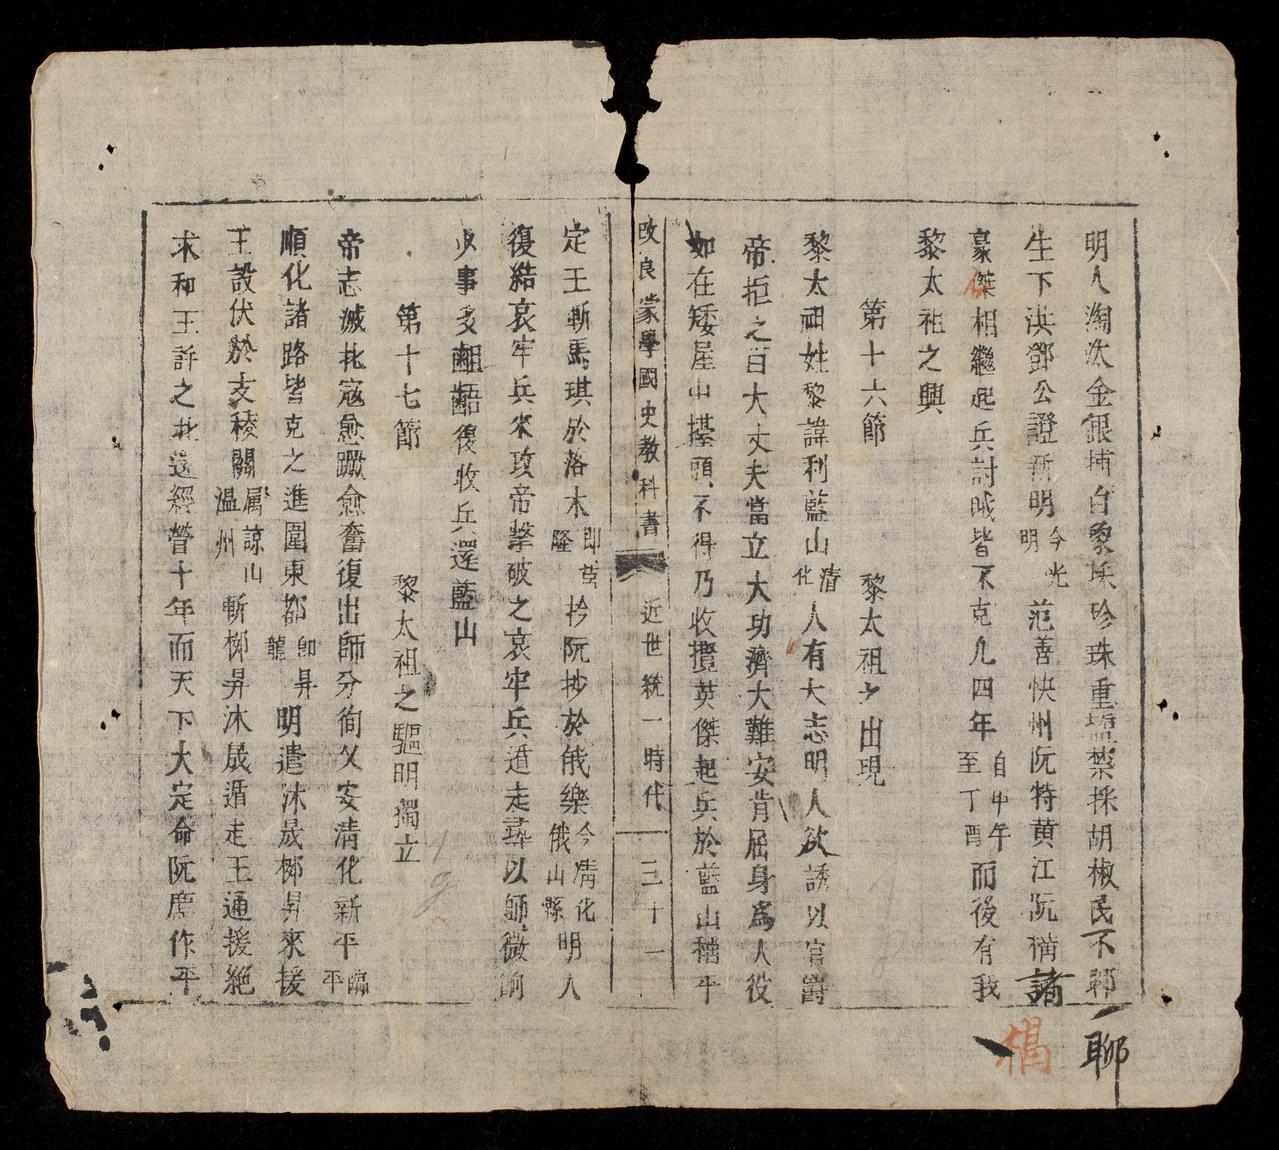 明人淘汰金銀捕白象採珍珠重鹽禁採胡椒民不聊
生下洪鄧公證新明今光明范善快州阮特黄江阮橋諸
豪傑相繼起兵討賊皆不克凡四年自甲午至丁酉而後有我
黎太祖之興
第十六節　黎太祖之出現
黎太祖姓黎諱利藍山清化人有大志明人欲誘以官爵
帝拒之曰大丈夫當立大功濟大難安肯屈身為人役
如在矮屋中擡頭不得乃收攬英傑起兵於藍山稱平
改良蒙學國史教科書　近世統一時代　三十一
定王斬馬琪於落木隆抄阮抄於俄樂今清化俄山縣明人
復結哀牢兵來攻帝擊破之哀牢兵遁走尋以師微餉
少事多齟齬復收兵還藍山
第十七節　黎太祖之驅明獨立
帝志滅北寇愈蹶愈奮復出師分徇乂安清化新平臨平
順化諸路皆克之進圍東都即昇龍明遣沐晟柳昇來援
王設伏於支稜關屬諒山温州斬柳昇沐晟遁走王通援絕
求和王許之北還經營十年而天下大定命阮廌作平
聊